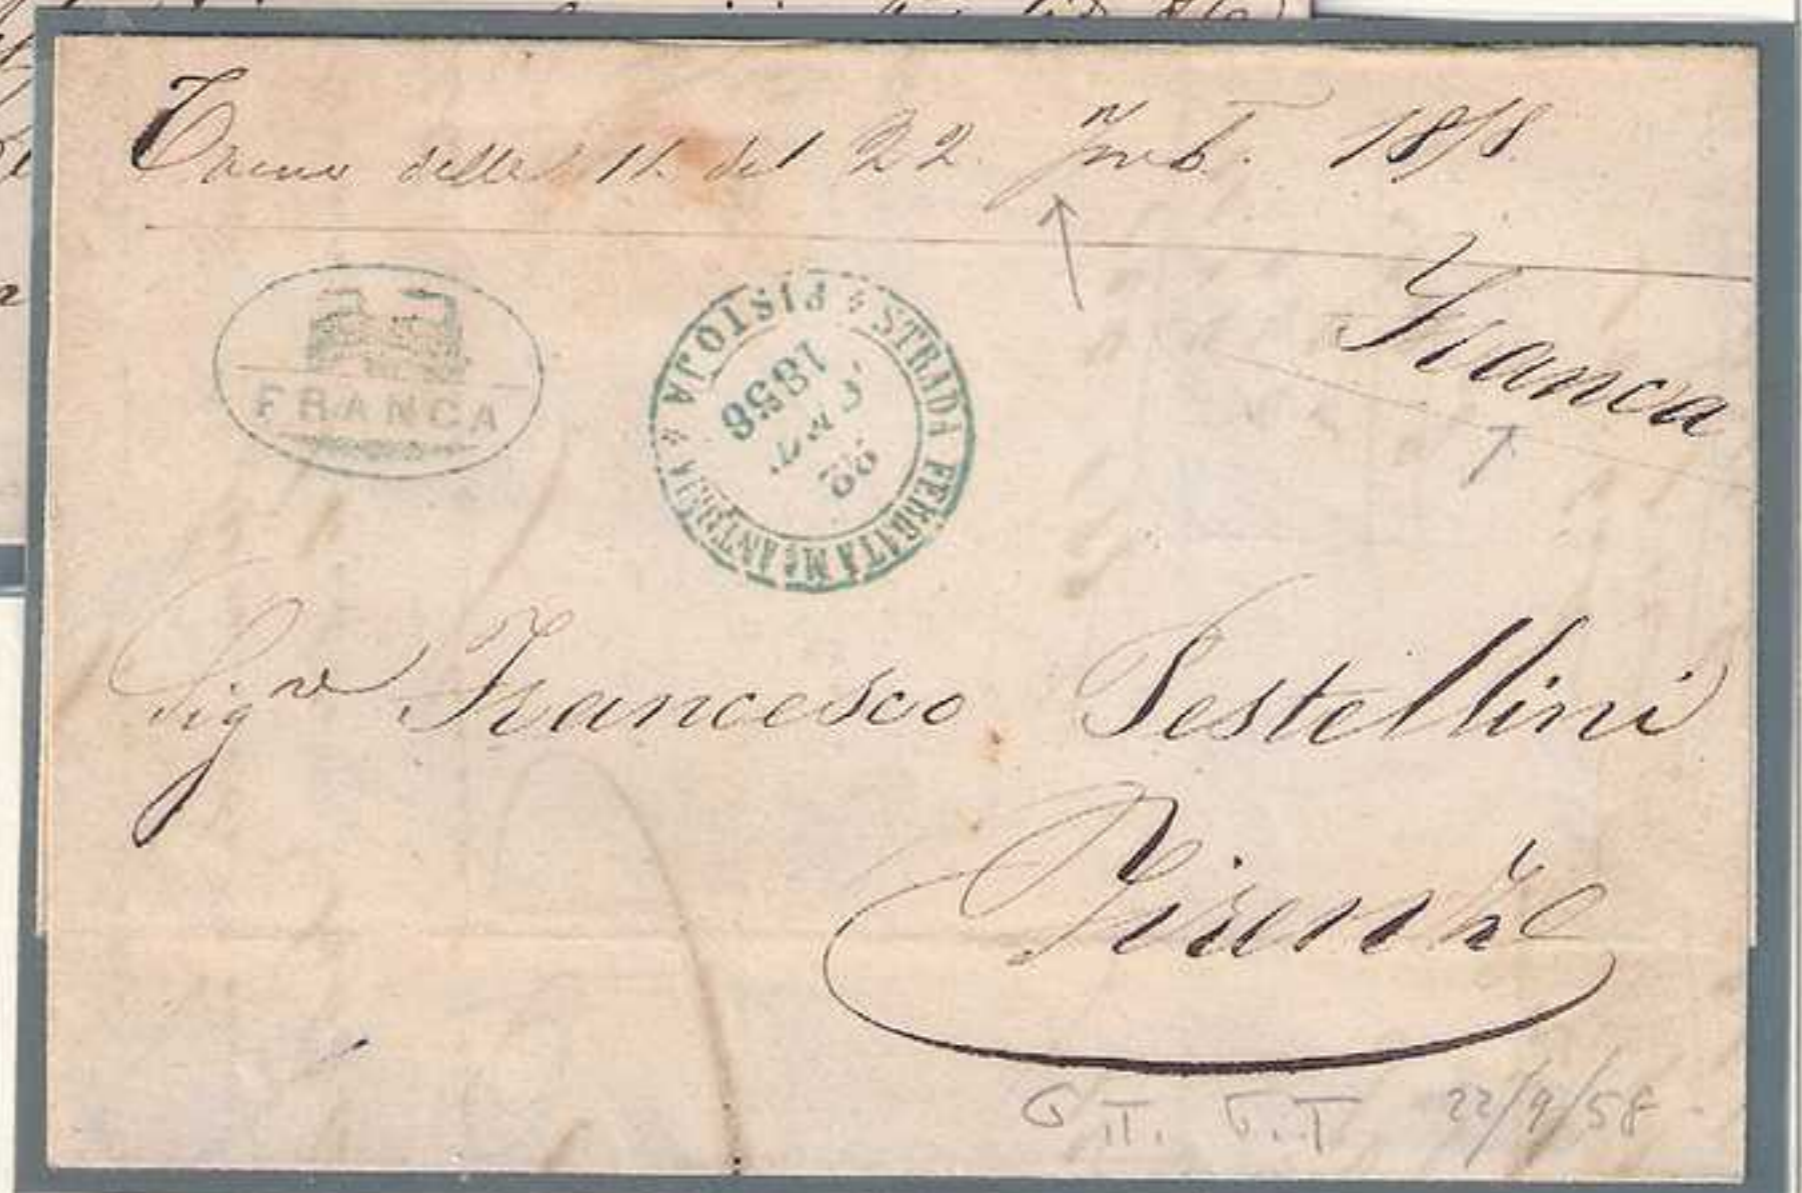 Treno delle 11. del 22. 1858.
Franca
FRANCA
PISTOJA * STRADA FERRATA M. ANTONIA *
22
1858
Sig.re Francesco Pestellini
Firenze
22/9/58